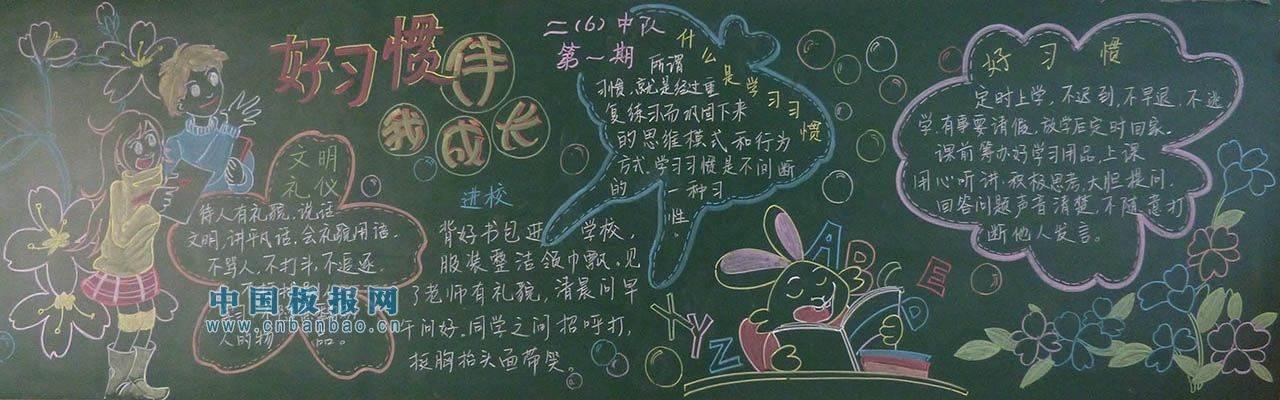 好习惯伴
我成长
二(6)中队
第一期
什么是学习习惯
所谓
习惯,就是经过重
复练习而巩固下来
的思维模式和行为
方式,学习习惯是不间断
的一种习
性。
文明
礼仪
待人有礼貌,说话
文明,讲平凡话,会礼貌用语。
不骂人,不打斗,不追逐,
人的物品。
中国板报网
www.cnbanbao.cn
进校
背好书包进学校,
服装整洁领巾飘。见
了老师有礼貌,清晨问早
午问好。同学之间招呼打,
挺胸抬头面带笑。
XYZ
ABCDE
好习惯
定时上学,不迟到,不早退,不逃
学,有事要请假。放学后定时回家。
课前筹办好学习用品,上课
用心听讲,积极思考,大胆提问,
回答问题声音清楚,不随意打
断他人发言。